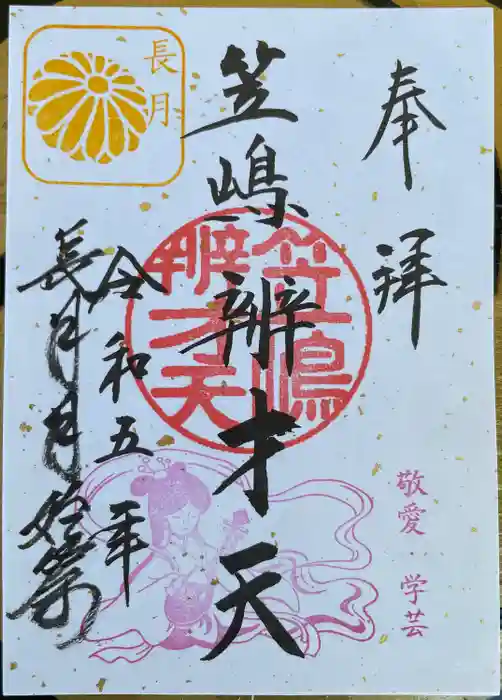 奉拝
敬愛 学芸
笠嶋辨才天
笠嶋
辨才天
長月
令和五年
長月月始祭